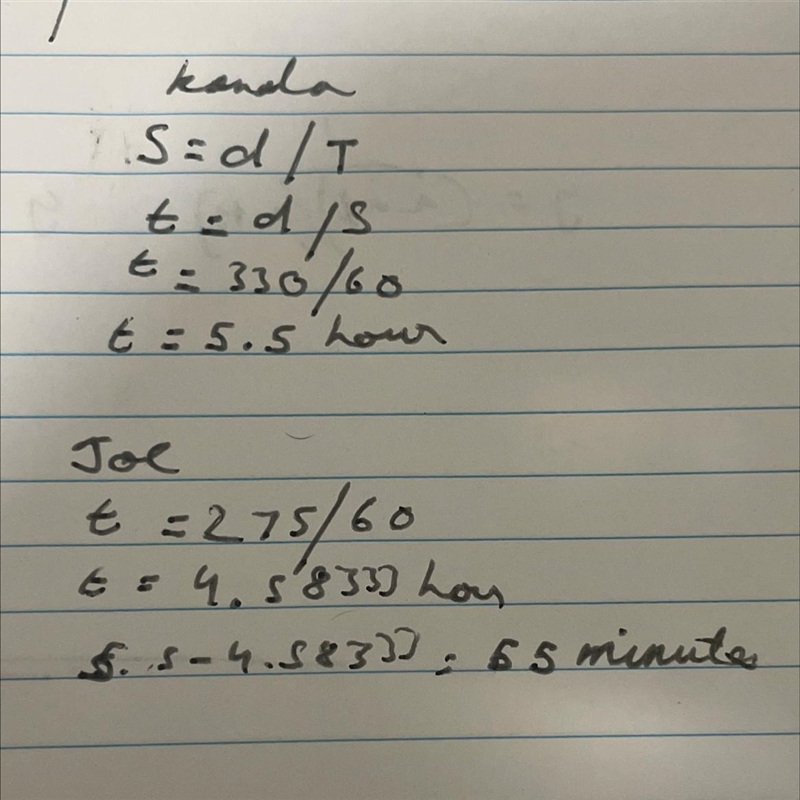 Kanda
S = d / T
t = d / S
t = 330 / 60
t = 5.5 hour
Joe
t = 275 / 60
t = 4.58333 hour
5.5 - 4.58333 = 55 minutes